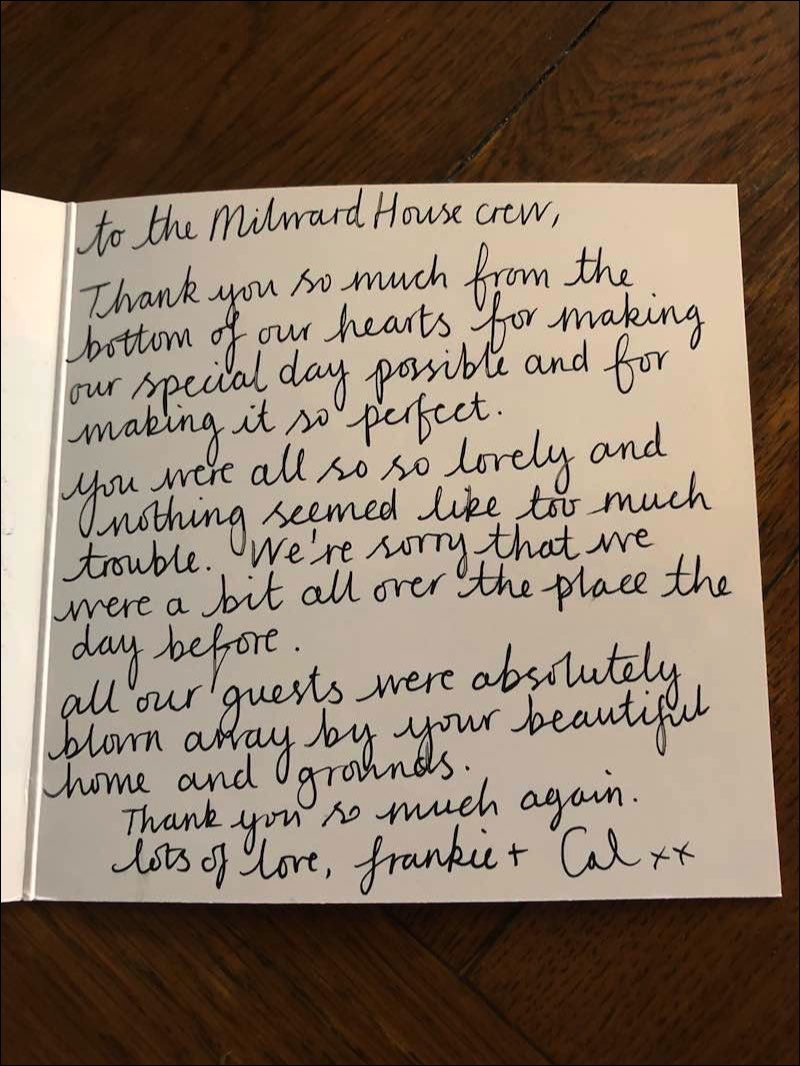 to the Milward House crew,
Thank you so much from the
bottom of our hearts for making
our special day possible and for
making it so perfect.
you were all so so lovely and
nothing seemed like too much
trouble. We're sorry that we
were a bit all over the place the
day before.
all our guests were absolutely
blown away by your beautiful
home and grounds.
Thank you so much again.
lots of love, frankie + Cal xx